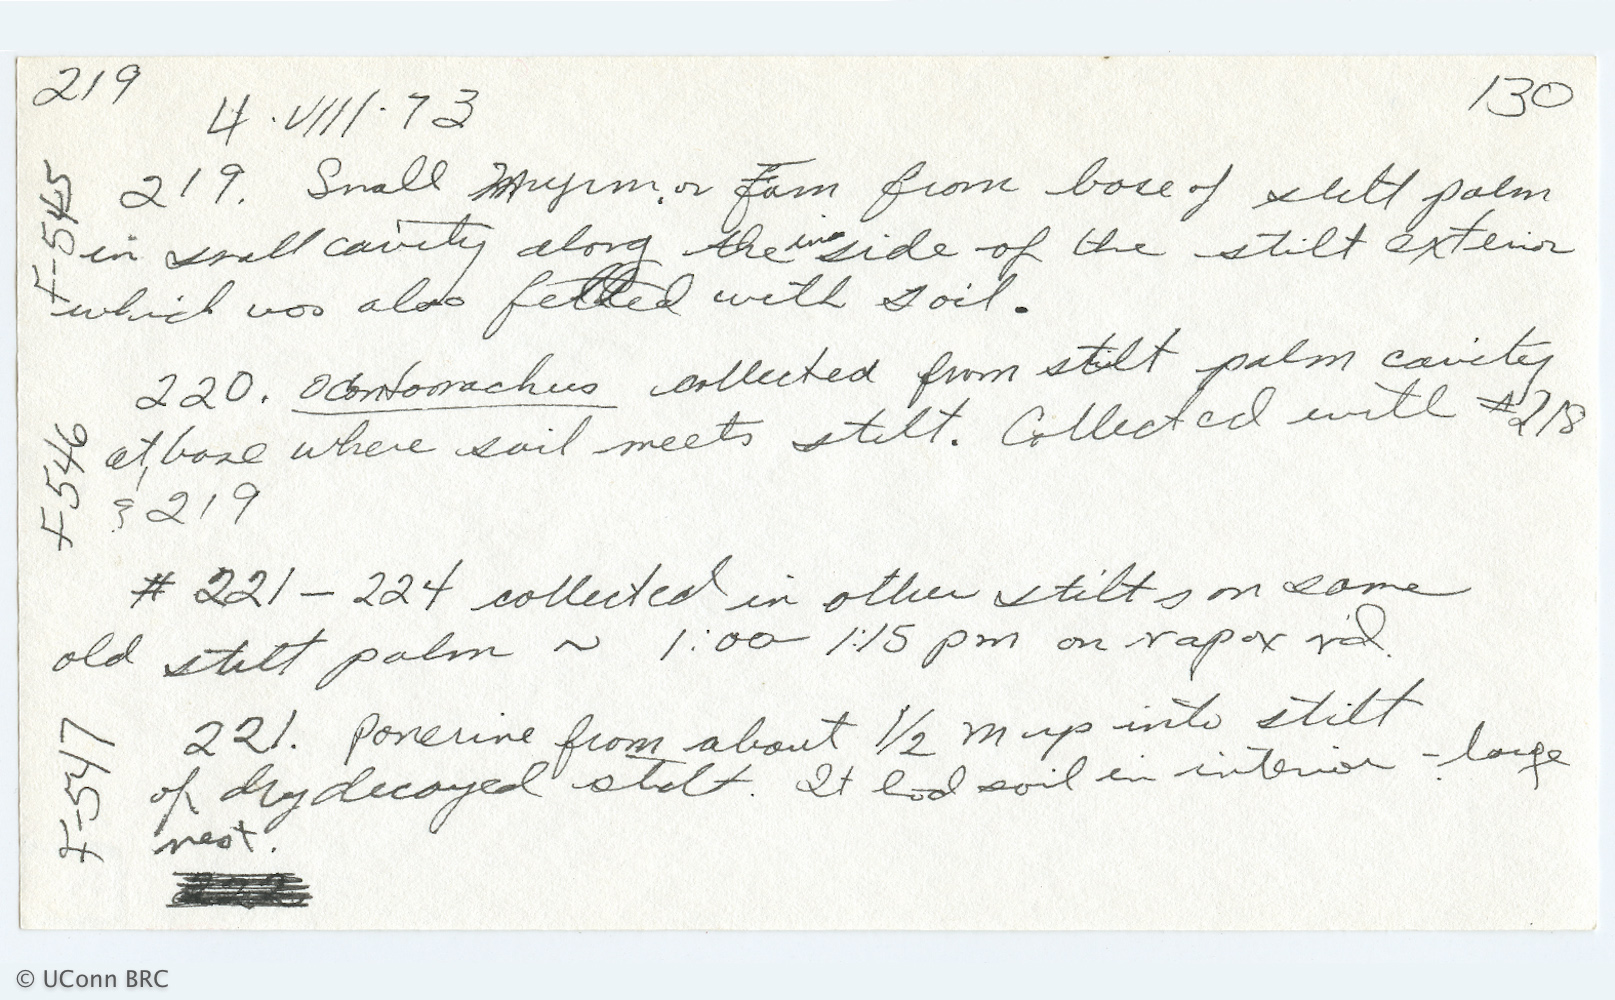 219
130
4.VIII.73
F-545
219. Small Myrm. or Form from base of stilt palm
in small cavity along the inside of the stilt exterior
which was also felted with soil.
F-546
220. Odontomachus collected from stilt palm cavity
at base where soil meets stilt. Collected with #218
& 219
# 221 – 224 collected in other stilts on same
old stilt palm ~ 1:00 1:15 pm on rd.
F-547
221. Ponerine from about 1/2 m up into stilt
of dry decayed stilt. It had soil in interior - large
nest.
© UConn BRC